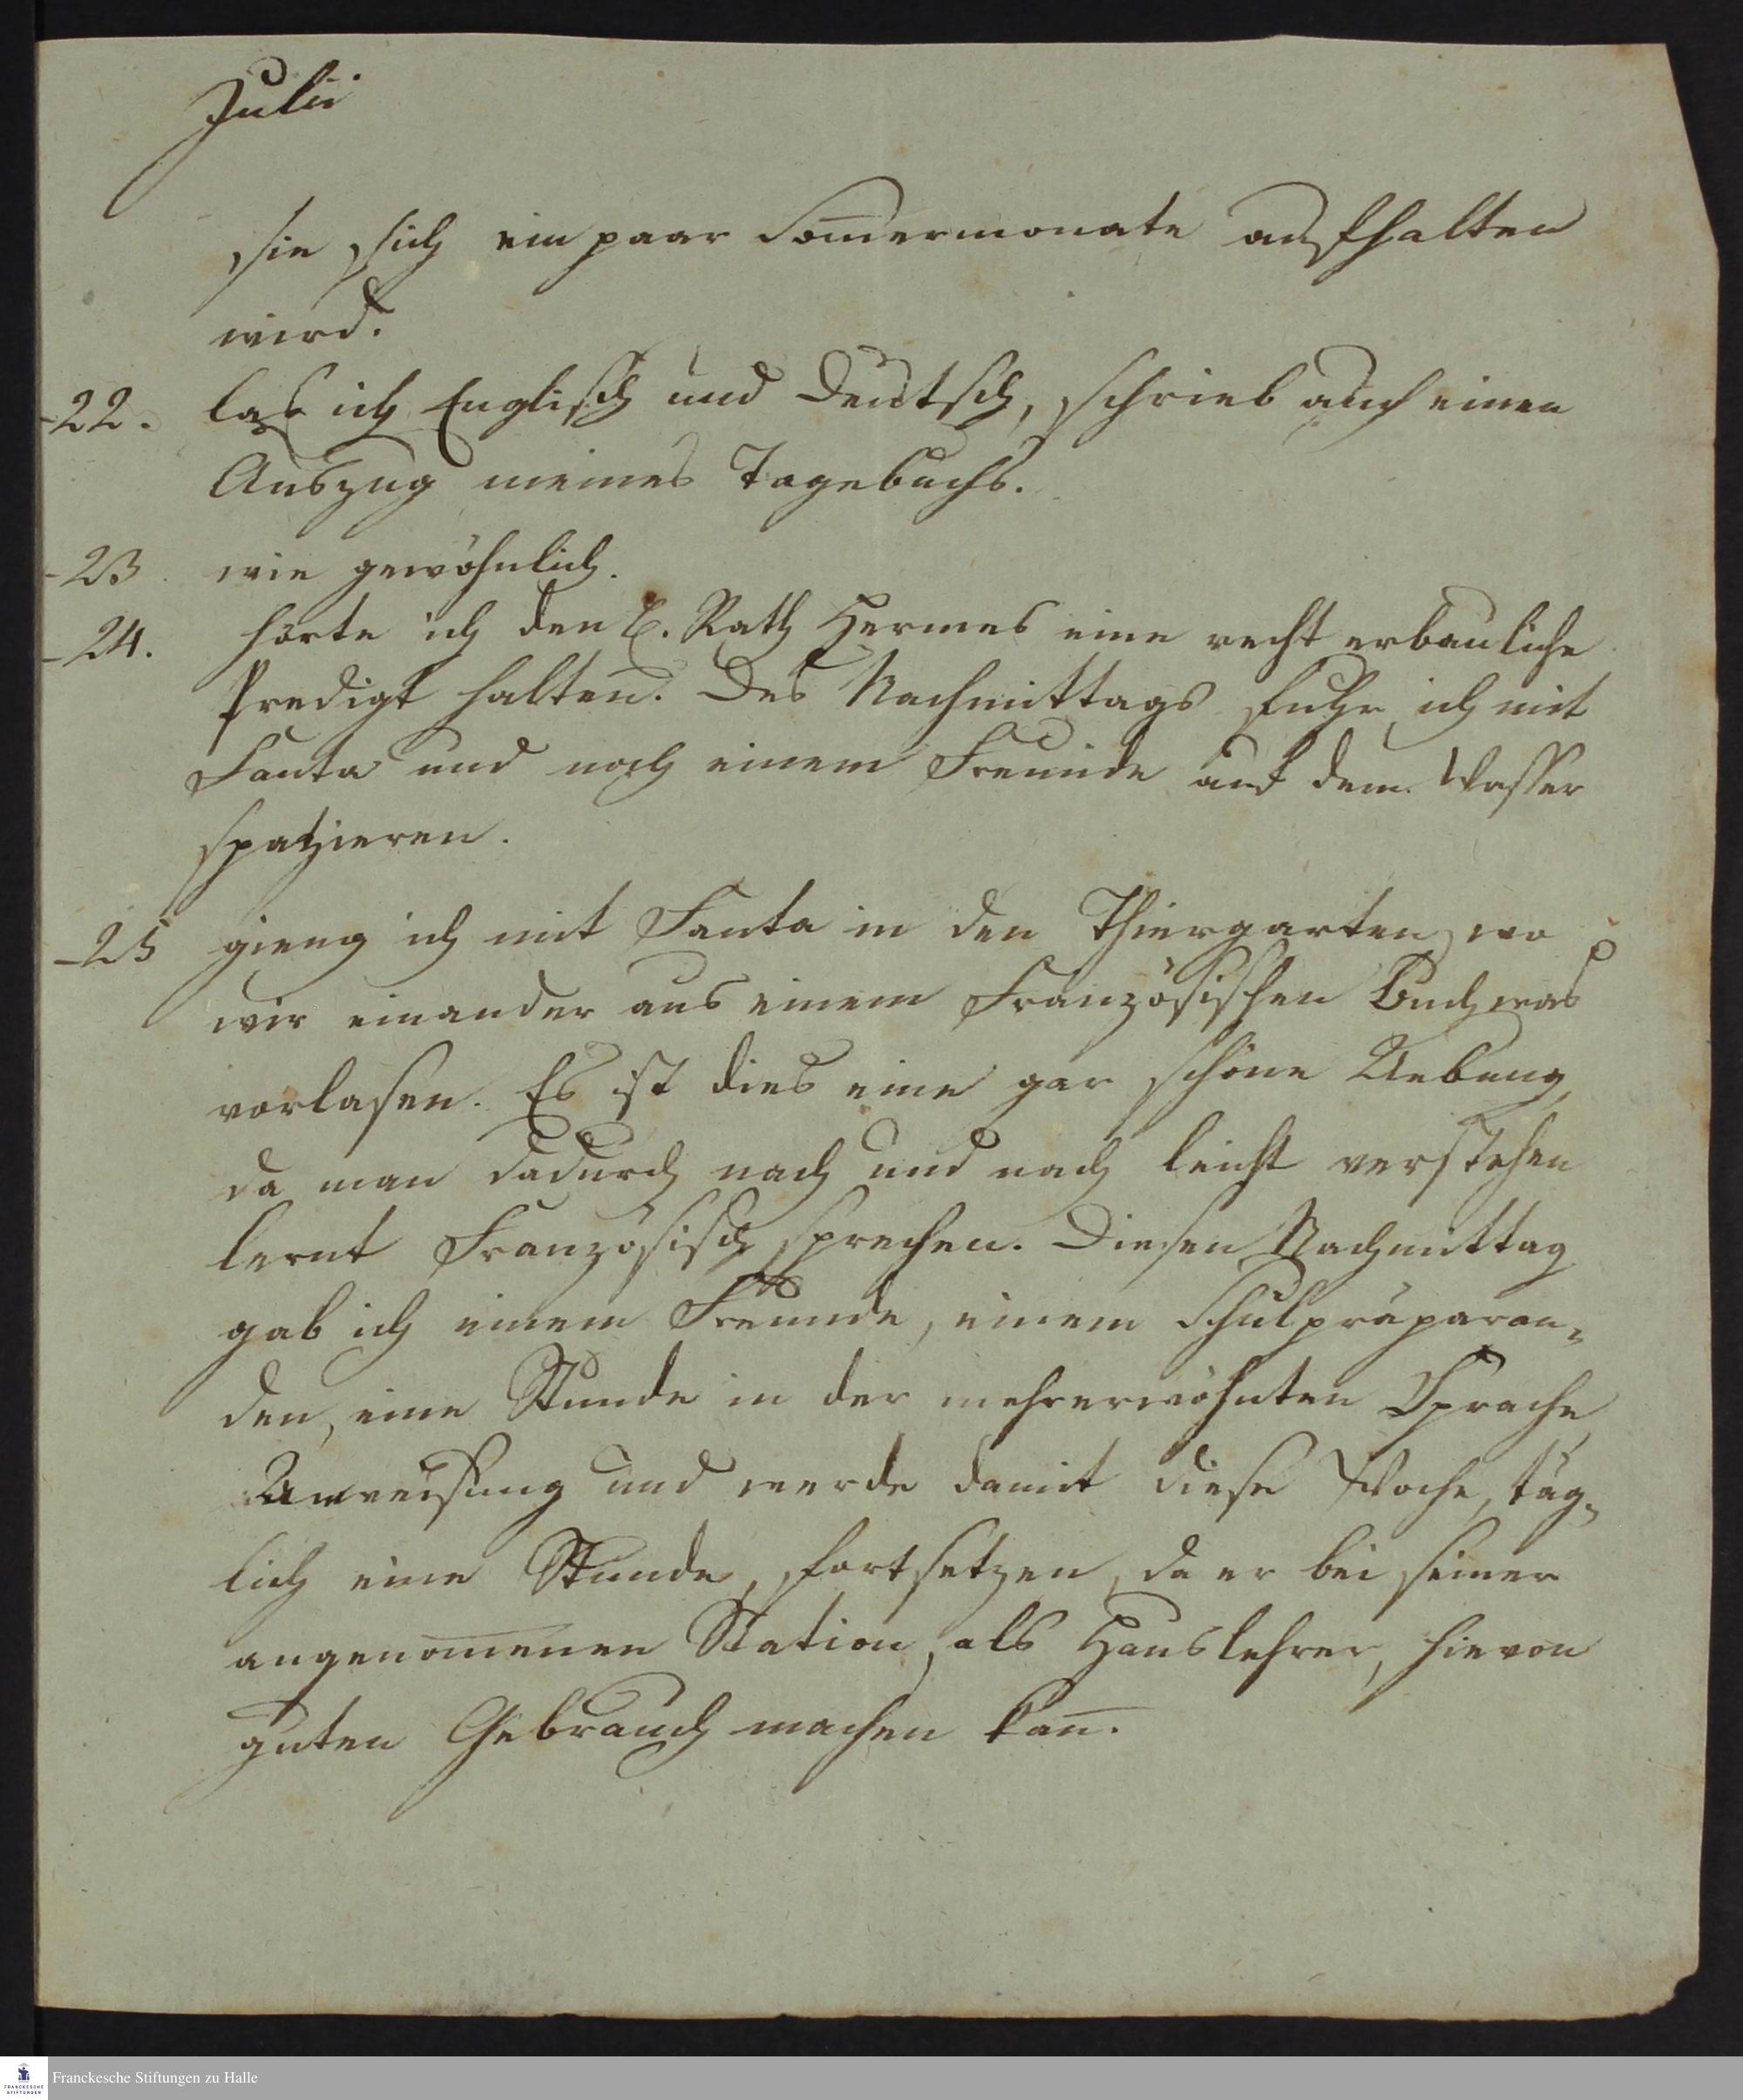 Julii
sie sich ein paar Som̅ermonate aufhalten
wird.
-22. las ich Englisch und Deutsch, schrieb auch einen
Auszug meines Tagebuchs.
-23. wie gewöhnlich.
-24. hörte ich den C. Rath Hermes eine recht erbauliche
Predigt halten. Des Nachmittags fuhr ich mit
Fanta und noch einem Freunde auf dem Wasser
spatzieren.
-25 gieng ich mit Fanta in den Thiergarten, wo
wir einander aus einem Französischen Buch was
vorlasen. Es ist dies eine gar schöne Uebung,
da man dadurch nach und nach leicht verstehen
lernt Französisch sprechen. Diesen Nachmittag
gab ich einem Freunde, einem Schulpräparan-
den, eine Stunde in der mehrerwöhnten Sprache
Anweisung und werde damit diese Woche, täg-
lich eine Stunde, fortsetzen, da er bei seiner
angenom̅enen Station, als Hauslehrer, hievon
guten Gebrauch machen kan̅.
FRANCKESCHE
STIFTUNGEN
Franckesche Stiftungen zu Halle